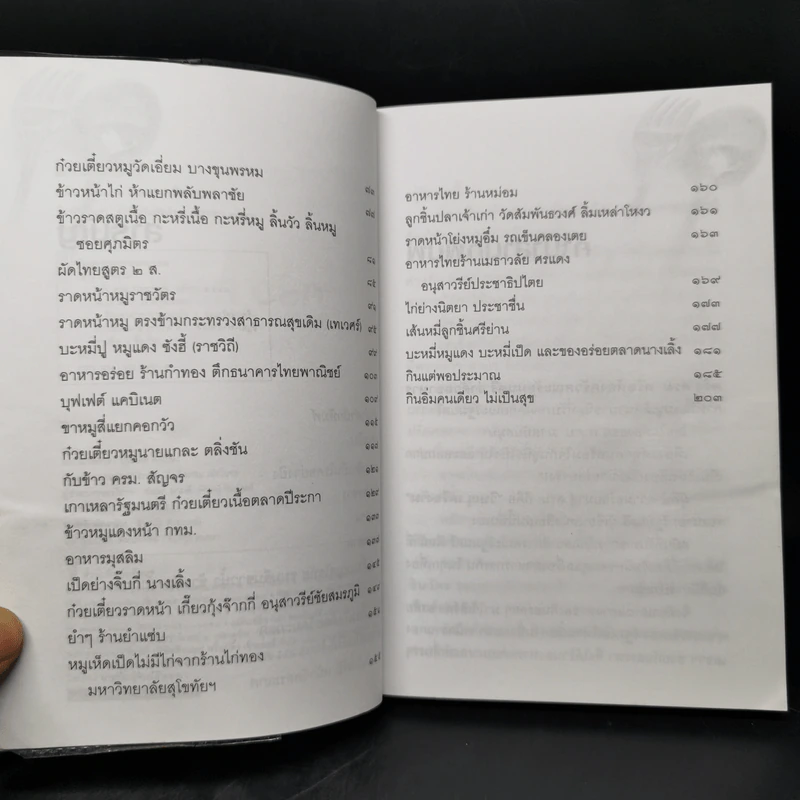 ก๋วยเตี๋ยวหมูวัดเอี่ยม บางขุนพรหม
ข้าวหน้าไก่ ห้าแยกพลับพลาชัย
ข้าวราดสตูเนื้อ กะหรี่เนื้อ กะหรี่หมู ลิ้นวัว ลิ้นหมู
ซอยศุภมิตร
ผัดไทยสูตร ๒ ส.
ราดหน้าหมูราชวัตร
ราดหน้าหมู ตรงข้ามกระทรวงสาธารณสุขเดิม (เทเวศร์)
บะหมี่ปู หมูแดง ซังฮี้ (ราชวิถี)
อาหารอร่อย ร้านกำทอง ตึกธนาคารไทยพาณิชย์ ๑๐๓
บุฟเฟต์ แคบิเนต ๑๐๙
ขาหมูสี่แยกคอกวัว ๑๑๕
ก๋วยเตี๋ยวหมูนายแกละ ตลิ่งชัน
กับข้าว ครม. สัญจร ๑๒๑
เกาเหลารัฐมนตรี ก๋วยเตี๋ยวเนื้อตลาดปีระกา
ข้าวหมูแดงหน้า กทม.
อาหารมุสลิม
เป็ดย่างจิ๊บกี่ นางเลิ้ง
ก๋วยเตี๋ยวราดหน้า เกี๊ยวกุ้งจ๊ากกี่ อนุสาวรีย์ชัยสมรภูมิ
ยำๆ ร้านยำแซ่บ
หมูเห็ดเป็ดไม่มีไก่จากร้านไก่ทอง
มหาวิทยาลัยสุโขทัยฯ
อาหารไทย ร้านหม่อม ๑๖๐
ลูกชิ้นปลาเจ้าเก่า วัดสัมพันธวงศ์ ลิ้มเหล่าโหงว ๑๖๑
ราดหน้าโย่งหมูอึ๋ม รถเข็นคลองเตย ๑๖๓
อาหารไทยร้านเมธาวลัย ศรแดง
อนุสาวรีย์ประชาธิปไตย ๑๖๙
ไก่ย่างนิตยา ประชาชื่น ๑๗๓
เส้นหมี่ลูกชิ้นศรีย่าน ๑๗๗
บะหมี่หมูแดง บะหมี่เป็ด และของอร่อยตลาดนางเลิ้ง ๑๘๑
กินแต่พอประมาณ ๑๘๕
กินอิ่มคนเดียว ไม่เป็นสุข ๒๐๓